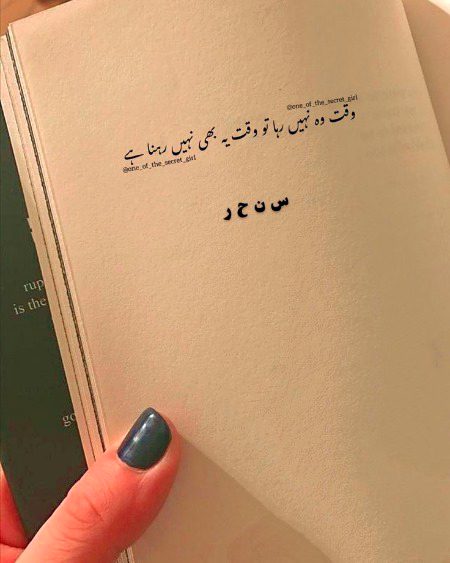 @one_of_the_secret_girl
وقت وہ نہیں رہا تو وقت یہ بھی نہیں رہنا ہے
@one_of_the_secret_girl
س ن ح ر
rup
is the
go